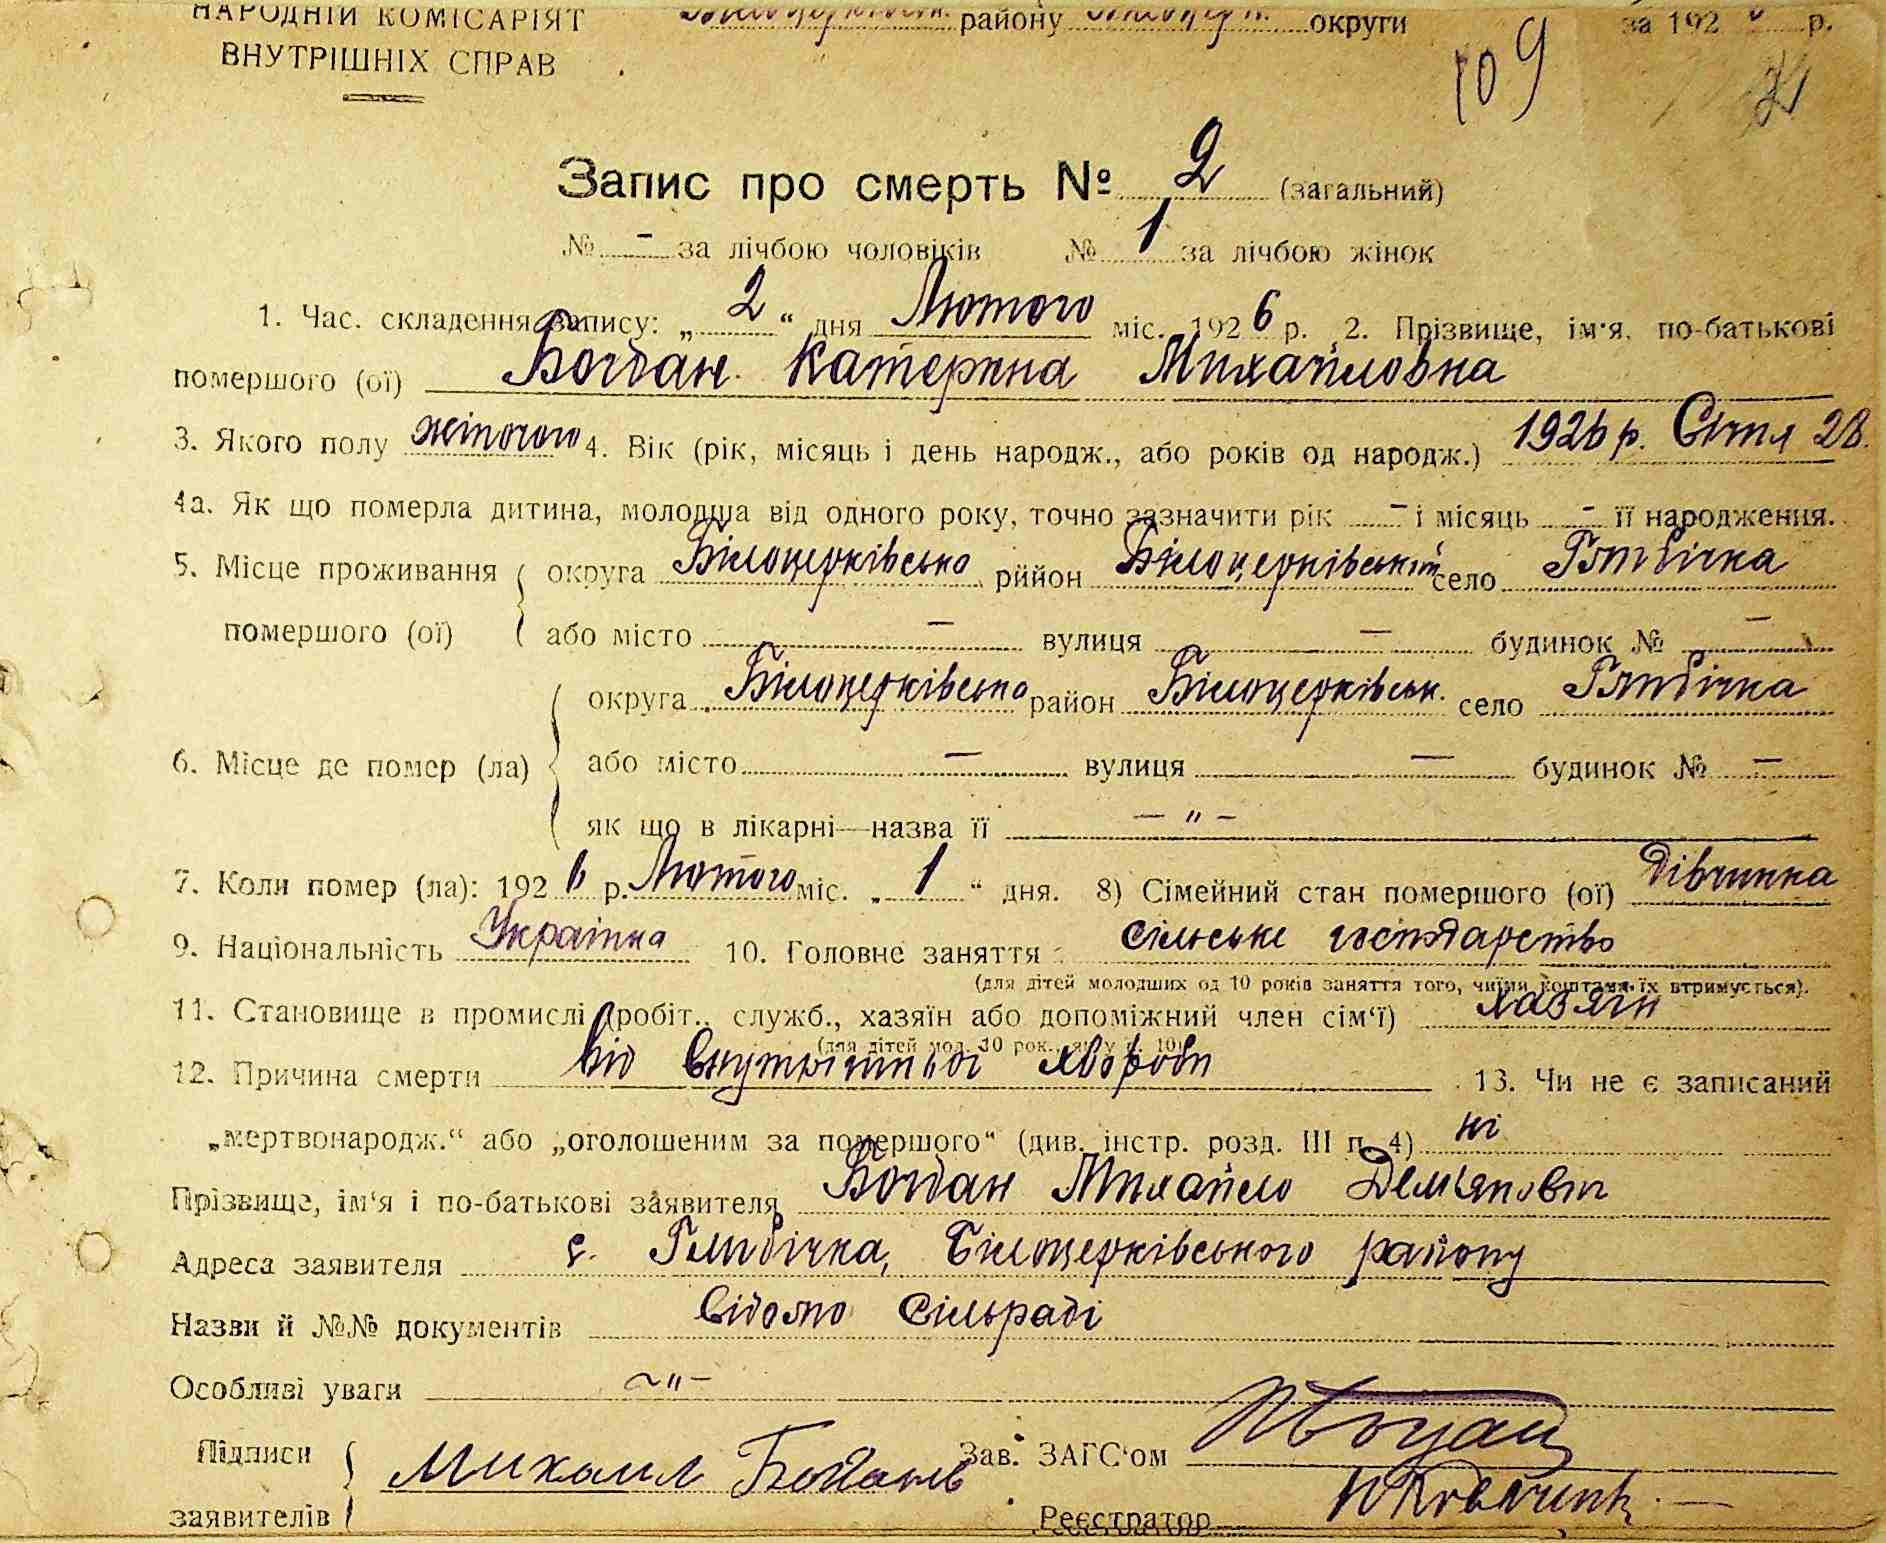 НАРОДНІЙ КОМІСАРІЯТ району округи за 192 р.
ВНУТРІШНІХ СПРАВ
109
Запис про смерть № 2 (загальний)
№ - за лічбою чоловіків № 1 за лічбою жінок
1. Час. складення запису: „ 2 “ дня Лютого міс. 1926 р. 2. Прізвище, ім'я, по-батькові
помершого (ої) Богдан Катерина Михайловна
3. Якого полу жіночого 4. Вік (рік, місяць і день народж., або років од народж.) 1926 р. Січня 28.
4а. Як що померла дитина, молодша від одного року, точно зазначити рік - і місяць - її народження.
5. Місце проживання округа Білоцерківська рййон Білоцерківський село Глибічка
помершого (ої) або місто — вулиця — будинок № —
округа Білоцерківська район Білоцерківськ. село Глибічка
6. Місце де помер (ла) або місто — вулиця — будинок № —
як що в лікарні—назва її — „ –
7. Коли помер (ла): 1926 р. Лютого міс. „ 1 “ дня. 8) Сімейний стан помершого (ої) дівчинка
9. Національність Українка 10. Головне заняття сільське господарство
(для дітей молодших од 10 років заняття того, чиїми коштами їх втримується).
11. Становище в промислі (робіт., служб., хазяїн або допоміжний член сім'ї) хазяїн
(для дітей мол. 10 рок., як у п. 10)
12. Причина смерти від внутрішньої хвороби 13. Чи не є записаний
„мертвонародж.“ або „оголошеним за помершого“ (див. інстр. розд. III п. 4) ні
Прізвище, ім'я і по-батькові заявителя Богдан Михайло Дем'янович
Адреса заявителя с. Глибічка, Білоцерківського району
Назви й №№ документів Відомо Сільраді
Особливі уваги ~ „ –
Підписи Михаил Богдан Зав. ЗАГС'ом
заявителів Реєстратор